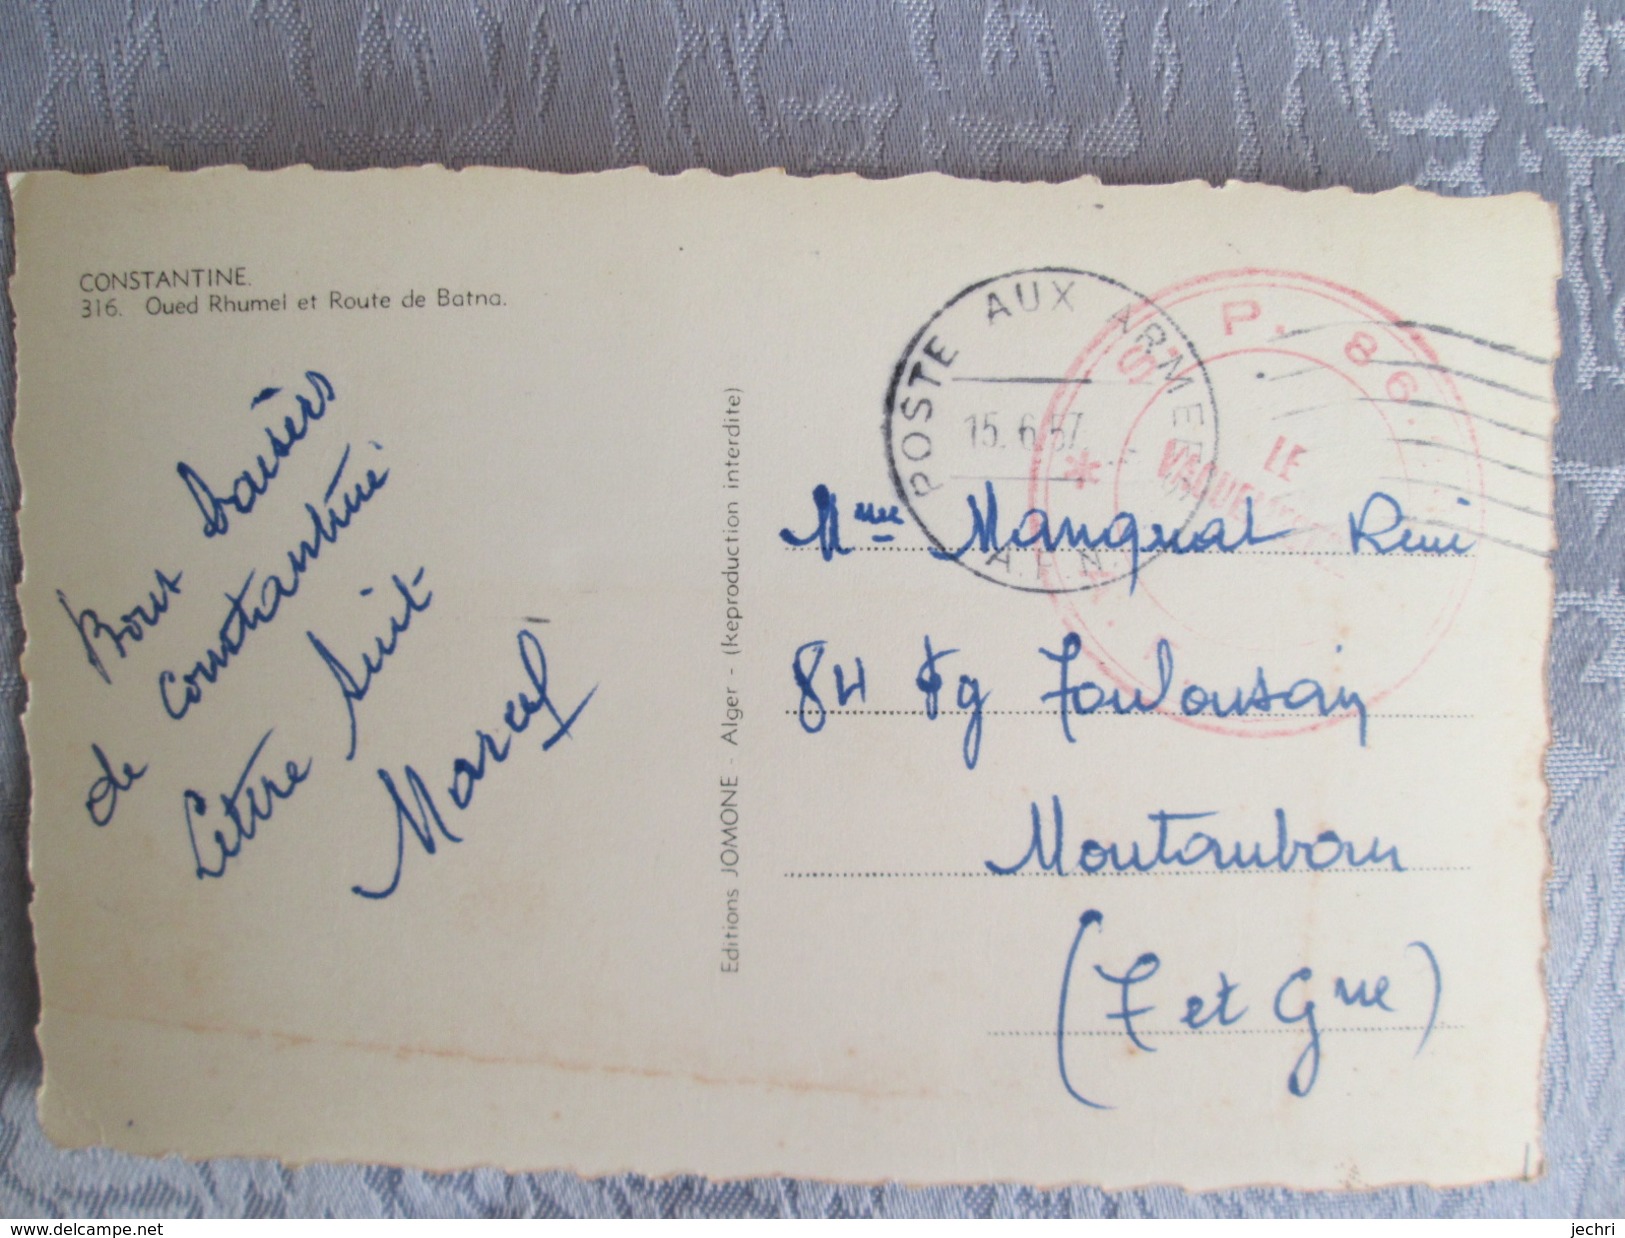 CONSTANTINE.
316. Oued Rhumel et Route de Batna.
Bons baisers
de Constantine
Lettre suit
Marcel
Editions JOMONE - Alger - (Reproduction interdite)
POSTE AUX ARMEES
15.6.57
A.F.N.
S. P. 86.
LE
VAGUEMESTRE
Mme Manguat
84 Fg Toulousain
Montauban
(T et Gne)
www.delcampe.net
jechri